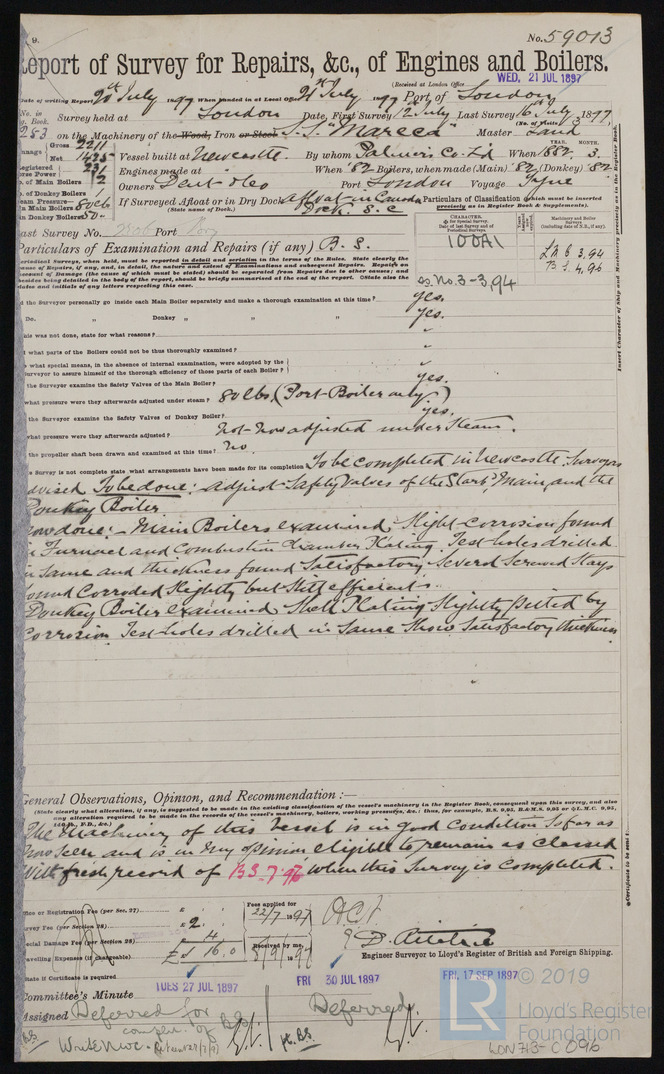 9.
No. 59013
Report of Survey for Repairs, &c., of Engines and Boilers.
(Received at London Office WED. 21 JUL 1897
Date of writing Report 20th July 1897 When handed in at Local Office 21st July 1897 Port of London
No. in Reg. Book. Survey held at London Date, First Survey 12 July Last Survey 16th July 1897
253 on the Machinery of the Wood, Iron or Steel S.S. "Mareca" Master Land
Gross 2211
Net 1425
Vessel built at Newcastle By whom Palmers Co. Ld When 1882. 3.
YEAR. MONTH.
Registered Horse Power 231
Engines made at When '82 Boilers, when made (Main) '82 (Donkey) '82
No. of Main Boilers 2
Owners Port London Voyage Tyne
No. of Donkey Boilers 1
Steam Pressure in Main Boilers 80 lb
If Surveyed Afloat or in Dry Dock afloat in
(State name of Dock.) Dock. S.E
in Donkey Boilers 50
Particulars of Classification (which must be inserted precisely as in Register Book & Supplements).
Last Survey No. Port
Particulars of Examination and Repairs (if any) B.S.
CHARACTER.
for Special Survey.
Date of last Survey and of Periodical Surveys.
Machinery and Boiler Surveys (including date of N.B., if any).
100A1
B S. 4,96
ss. No. 3-3,94
Insert Character of Ship and Machinery precisely as in the Register Book.
Did the Surveyor personally go inside each Main Boiler separately and make a thorough examination at this time? yes.
Do. " Donkey " " " yes.
If this was not done, state for what reasons? "
And what parts of the Boilers could not be thoroughly examined? "
Also what special means, in the absence of internal examination, were adopted by the
Surveyor to assure himself of the thorough efficiency of those parts of each Boiler? "
Did the Surveyor examine the Safety Valves of the Main Boiler? yes.
To what pressure were they afterwards adjusted under steam? 80 lbs. (Port-Boiler only.)
Did the Surveyor examine the Safety Valves of Donkey Boiler? yes.
To what pressure were they afterwards adjusted? Not-now adjusted under Steam.
Has the propeller shaft been drawn and examined at this time? No.
If the Survey is not complete state what arrangements have been made for its completion To be completed in Newcastle, Surveyors
advised To be done: adjust Safety Valves of the Starb. Main, and the
Donkey Boiler
Now done:- Main Boilers examined, Slight Corrosion found
in Furnaces and Combustion Chamber Plating. Test-holes drilled
in Same and thickness found Satisfactory Several Screwed Stays
found Corroded Slightly but Still efficient.
Donkey Boiler examined Shell Plating Slightly pitted by
Corrosion Test-holes drilled in Same Show Satisfactory thickness
General Observations, Opinion, and Recommendation:—
(State clearly what alteration, if any, is suggested to be made in the existing classification of the vessel's machinery in the Register Book, consequent upon this survey, and also
any alteration required to be made in the records of the vessel's machinery, boilers, working pressures, &c.: thus, for example, B.S. 9,95, B.&M.S. 9,95 or L.M.C. 9,95,
The Machinery of this Vessel is in good Condition So far as
now seen and is in my opinion eligible to remain as Classed
With fresh record of B S. 7.97 when this Survey is Completed.
Certificate to be sent
Office or Registration Fee (per Sec. 27) £
Survey Fee (per Section 28) £ 2.
Special Damage Fee (per Section 28) £ 4
Travelling Expenses (if chargeable) £ 16.0
Fees applied for 22/7 1897
Received by me, 1897
Engineer Surveyor to Lloyd's Register of British and Foreign Shipping.
State if Certificate is required
TUES 27 JUL 1897
FRI 30 JUL 1897
FRI. 17 SEP 1897
Committee's Minute
Assigned Deferred for
compln. of B.S.
Deferred
Write Nwc.
© 2019
LR
Lloyd's Register
Foundation
LON713-C096